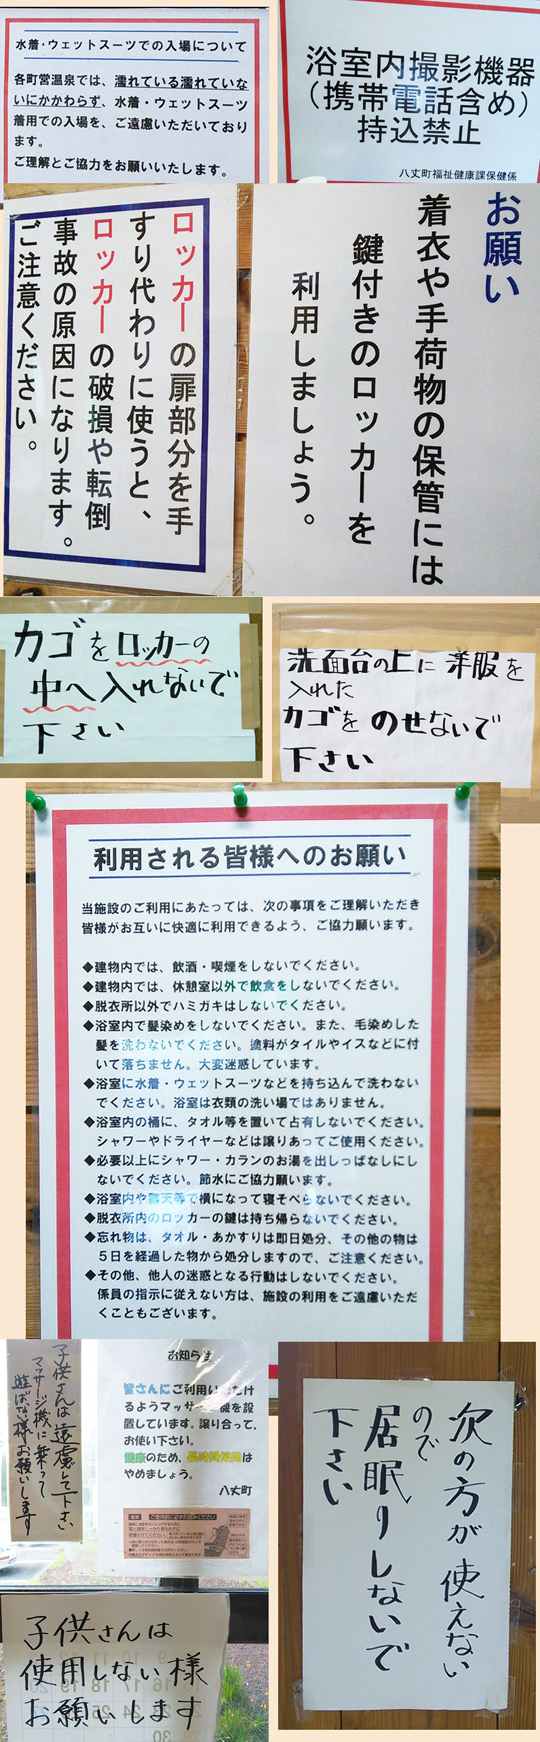 水着・ウェットスーツでの入場について
各町営温泉では、濡れている濡れていな
いにかかわらず、水着・ウェットスーツ
着用での入場を、ご遠慮いただいており
ます。
ご理解とご協力をお願いいたします。
浴室内撮影機器
（携帯電話含め）
持込禁止
八丈町福祉健康課保健係
ロッカーの扉部分を手
すり代わりに使うと、
ロッカーの破損や転倒
事故の原因になります。
ご注意ください。
お願い
着衣や手荷物の保管には
鍵付きのロッカーを
利用しましょう。
カゴをロッカーの
中へ入れないで
下さい
洗面台の上に洋服を
入れた
カゴをのせないで
下さい
利用される皆様へのお願い
当施設のご利用にあたっては、次の事項をご理解いただき
皆様がお互いに快適に利用できるよう、ご協力願います。
◆建物内では、飲酒・喫煙をしないでください。
◆建物内では、休憩室以外で飲食をしないでください。
◆脱衣所以外でハミガキはしないでください。
◆浴室内で髪染めをしないでください。また、毛染めした
髪を洗わないでください。塗料がタイルやイスなどに付
いて落ちません。大変迷惑しています。
◆浴室に水着・ウェットスーツなどを持ち込んで洗わない
でください。浴室は衣類の洗い場ではありません。
◆浴室内の桶に、タオル等を置いて占有しないでください。
シャワーやドライヤーなどは譲りあってご使用ください。
◆必要以上にシャワー・カランのお湯を出しっぱなしにし
ないでください。節水にご協力願います。
◆浴室内や露天等で横になって寝そべらないでください。
◆脱衣所内のロッカーの鍵は持ち帰らないでください。
◆忘れ物は、タオル・あかすりは即日処分、その他の物は
５日を経過した物から処分しますので、ご注意ください。
◆その他、他人の迷惑となる行動はしないでください。
係員の指示に従えない方は、施設の利用をご遠慮いただ
くこともございます。
子供さんは遠慮して下さい
マッサージ機に乗って
遊ばない様お願いします
お知らせ
皆さんにご利用いただけ
るようマッサージ機を設
置しています。譲り合って、
お使い下さい。
健康のため、長時間使用は
やめましょう。
八丈町
子供さんは
使用しない様
お願いします
次の方が使えない
ので
居眠りしないで
下さい